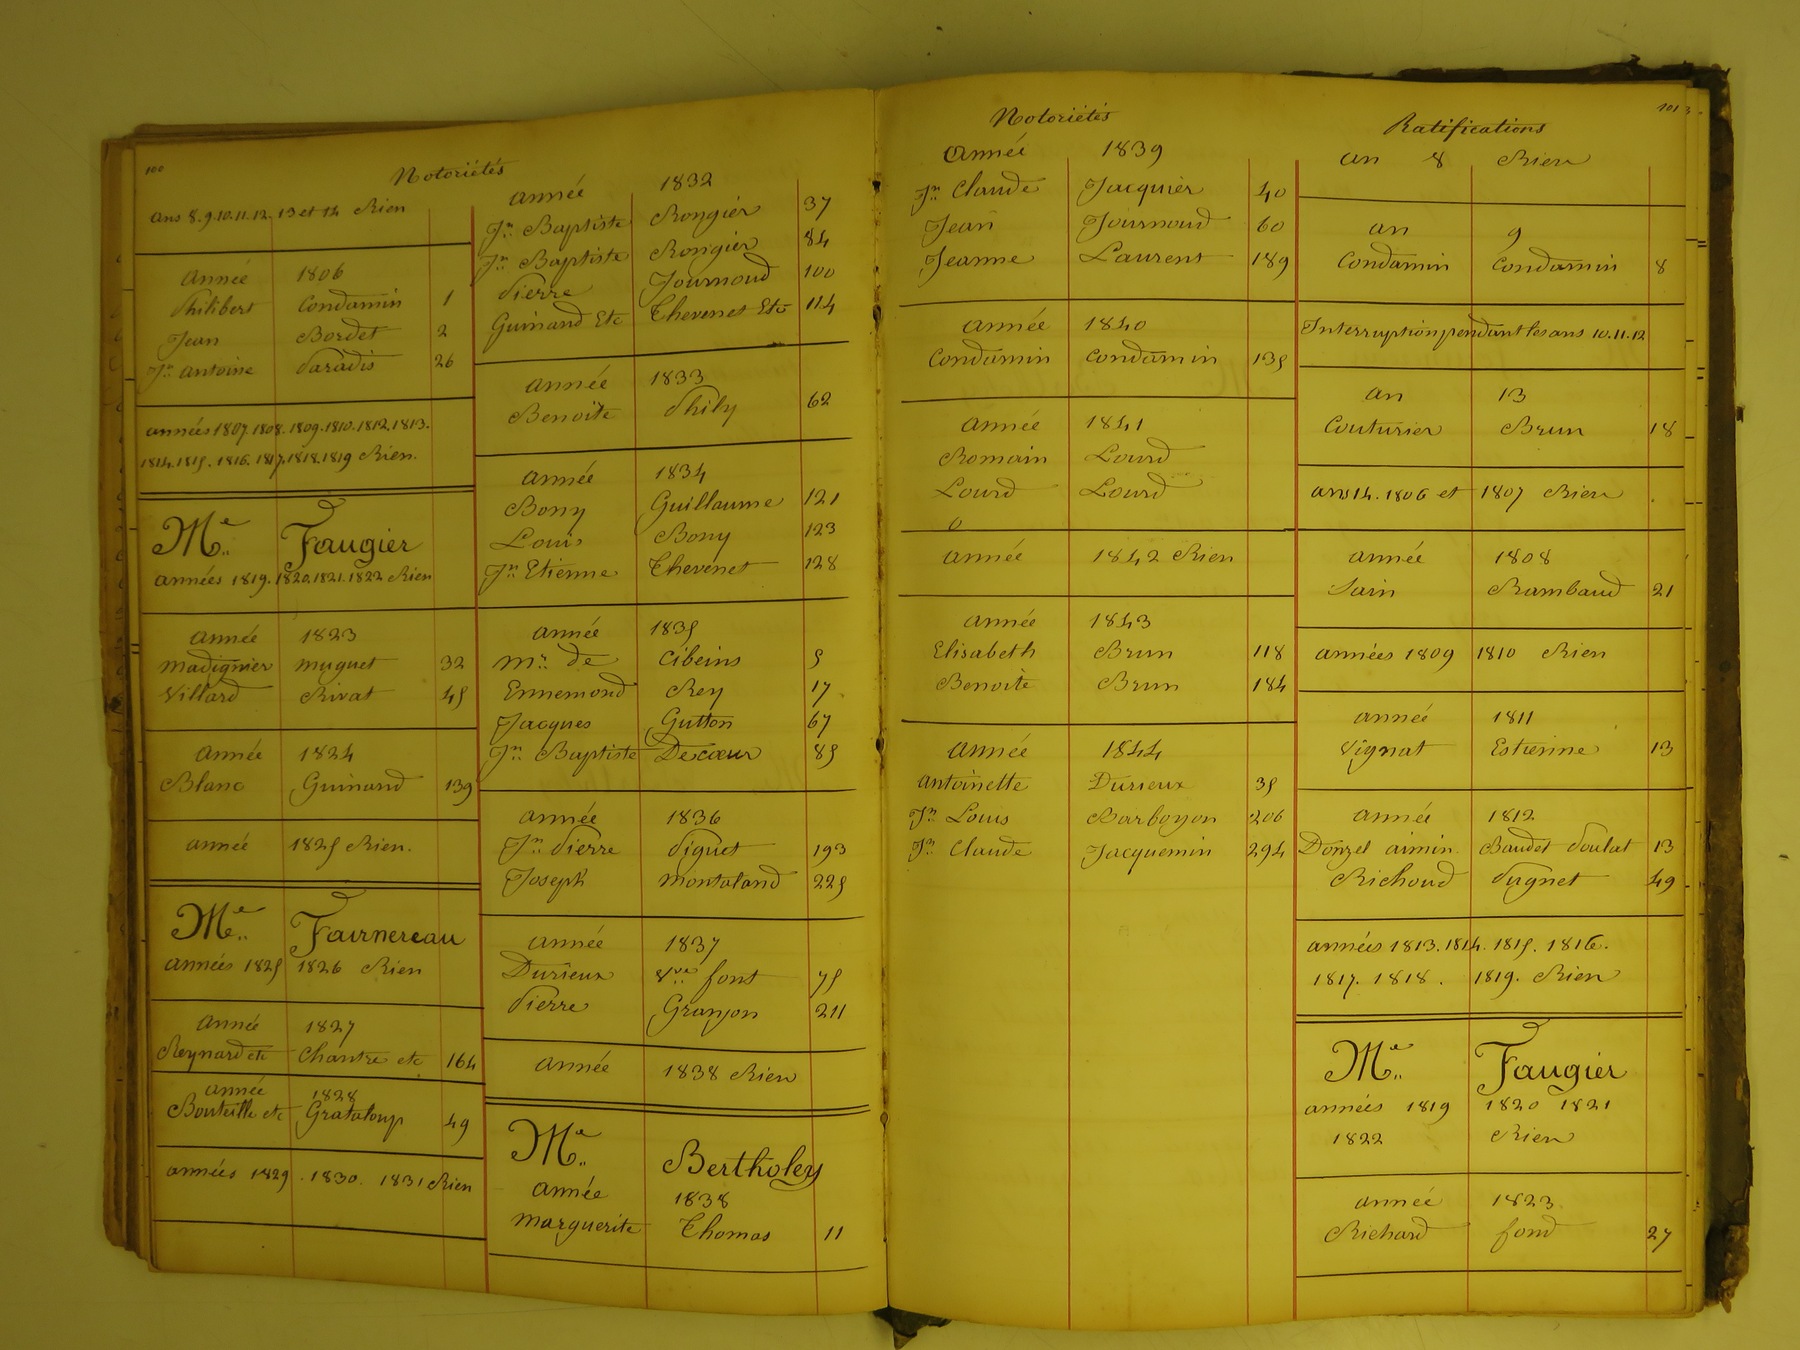 100
Notoriétés
ans 8. 9. 10. 11. 12. 13 et 14 Rien
année 1806
Philibert Condamin 1
Jean Bordet 2
Jn antoine Paradis 26
années 1807. 1808. 1809. 1810. 1812. 1813.
1814. 1815. 1816. 1817. 1818. 1819 Rien.
Me Faugier
années 1819. 1820. 1821. 1822 Rien
année 1823
Madignier Muguet 32
Villard Rivat 45
année 1824
Blanc Guinand 139
année 1825 Rien.
Me Favrnereau
années 1825 1826 Rien
année 1827
Reynard etc Chantre etc 164
année 1828
Bouteille etc Grataloup 49
années 1829. 1830. 1831 Rien
année 1832
Jn Baptiste Rongier 37
Jn Baptiste Rongier 84
Pierre Journoud 100
Guinand Etc Thevenet Etc 114
année 1833
Benoite Phily 62
année 1834
Bony Guillaume 121
Louis Bony 123
Jn Etienne Thevenet 128
année 1835
Mr de Cibeins 5
Ennemond Rey 17
Jacques Gutton 67
Jn Baptiste Decœur 85
année 1836
Jn Pierre Piguet 193
Joseph Montaland 225
année 1837
Durieux Vve font 75
Pierre Granjon 211
année 1838 Rien
Me Bertholey
année 1838
Marguerite Thomas 11
Notoriétés
année 1839
Jn Claude Jacquier 40
Jean Journoud 60
Jeanne Laurent 189
année 1840
Condamin Condamin 135
année 1841
Romain Lourd
Lourd Lourd
0
année 1842 Rien
année 1843
Elisabeth Brun 118
Benoite Brun 184
année 1844
antoinette Durieux 35
Jn Louis Barboyon 206
Jn Claude Jacquemin 294
101
Ratifications
an 8 Rien
an 9
Condamin Condamin 8
Interruption pendant les ans 10. 11. 12
an 13
Couturier Brun 18
ans 14. 1806 et 1807 Rien
année 1808
Sain Rambaud 21
années 1809 1810 Rien
année 1811
Vignat Estienne 13
année 1812
Donzel aimin. Baudet Poulat 13
Richoud Pugnet 49
années 1813. 1814. 1815. 1816.
1817. 1818. 1819. Rien
Me Faugier
années 1819 1820 1821
1822 Rien
année 1823
Richard fond 27